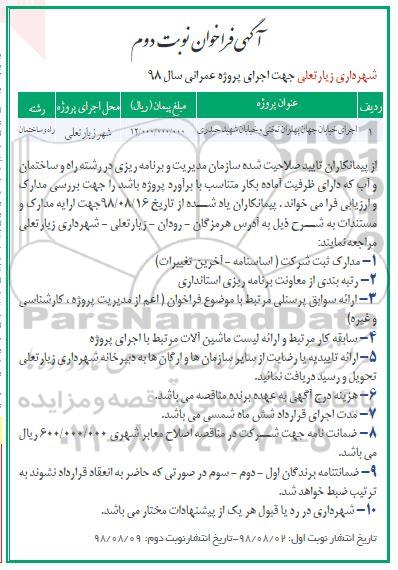 آگهی فراخوان نوبت دوم
شهرداری زیارتعلی جهت اجرای پروژه عمرانی سال ۹۸
ردیف عنوان پروژه مبلغ پیمان (ریال) محل اجرای پروژه رشته
۱ اجرای خیابان جهان پهلوان تختی + خیابان شهید حیدری ۱۲/۰۰۰/۰۰۰/۰۰۰ شهر زیارتعلی راه و ساختمان
از پیمانکاران تایید صلاحیت شده سازمان مدیریت و برنامه ریزی در رشته راه و ساختمان
و آب که دارای ظرفیت آماده بکار متناسب با برآورد پروژه باشد را جهت بررسی مدارک
و ارزیابی فرا می خواند . پیمانکاران یاد شده از تاریخ ۹۸/۰۸/۱۶جهت ارایه مدارک و
مستندات به شرح ذیل به آدرس هرمزگان - رودان - زیارتعلی - شهرداری زیارتعلی
مراجعه نمایند:
۱- مدارک ثبت شرکت ( اساسنامه - آخرین تغییرات)
۲- رتبه بندی از معاونت برنامه ریزی استانداری
۳- ارائه سوابق پرسنلی مرتبط با موضوع فراخوان ( اعم از مدیریت پروژه ، کارشناسی
و غیره)
۴- سابقه کار مرتبط و ارائه لیست ماشین آلات مرتبط با اجرای پروژه
۵- ارائه تاییدیه یا رضایت از سایر سازمان ها و ارگان ها به دبیرخانه شهرداری زیارتعلی
تحویل و رسید دریافت نمائید.
۶- هزینه درج آگهی به عهده برنده مناقصه می باشد.
۷- مدت اجرای قرارداد شش ماه شمسی می باشد.
۸- ضمانت نامه جهت شرکت در مناقصه اصلاح معابر شهری ۶۰۰/۰۰۰/۰۰۰ ریال
می باشد.
۹- ضمانتنامه برندگان اول - دوم - سوم در صورتی که حاضر به انعقاد قرارداد نشوند به
ترتیب ضبط خواهد شد.
۱۰- شهرداری در رد یا قبول هر یک از پیشنهادات مختار می باشد.
تاریخ انتشار نوبت اول: ۹۸/۰۸/۰۲-تاریخ انتشار نوبت دوم: ۹۸/۰۸/۰۹
ParsNamadData